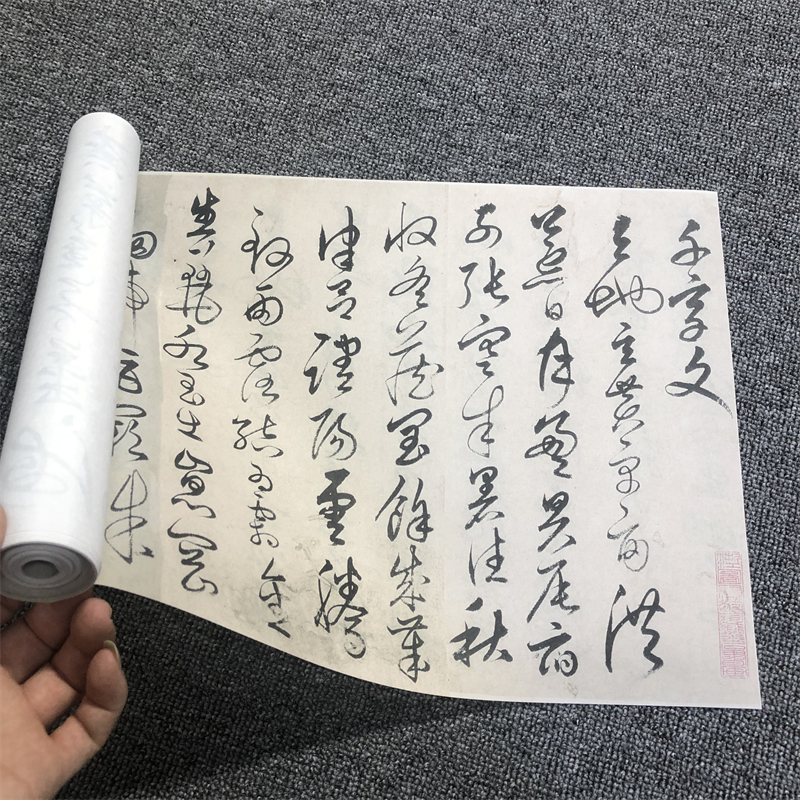 千字文
天地玄黃宇宙洪
荒日月盈昃辰宿
列張寒来暑往秋
收冬藏閏餘成歲
律吕調陽雲騰
致雨露結為霜金
生麗水玉出崑岡
巨闕珠